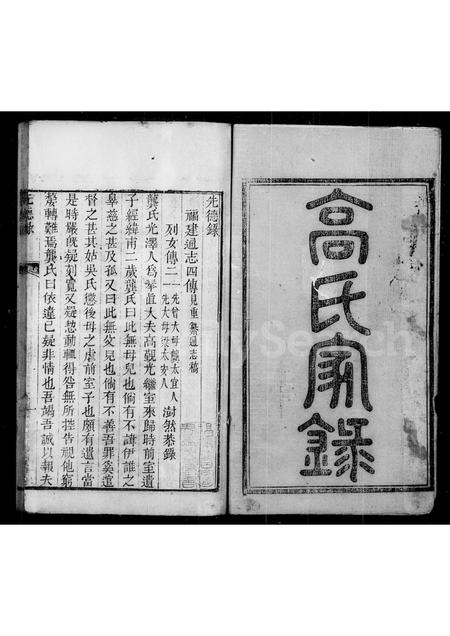 高氏家錄
先德錄
福建通志四傳見重纂通志稿
列女傳二一先曾大母龔太宜人
一先大母梁太安人
澍然恭錄
龔氏光澤人爲奉直大夫高觀光繼室來歸時前室遺
子經緯甫二歲龔氏曰此無母兒也倘有不諱伊誰之
辜慈之甚及孤又曰此無父兒也倘有不善吾罪奚逭
督之甚其姑吳氏懲後母之虐前室子也頗有遺言當
是時嚴旣疑刻寬又疑愬動輒得咎無所控告視他窮
嫠轉難焉龔氏曰依違已疑非情也吾竭吾誠以報夫
先德錄